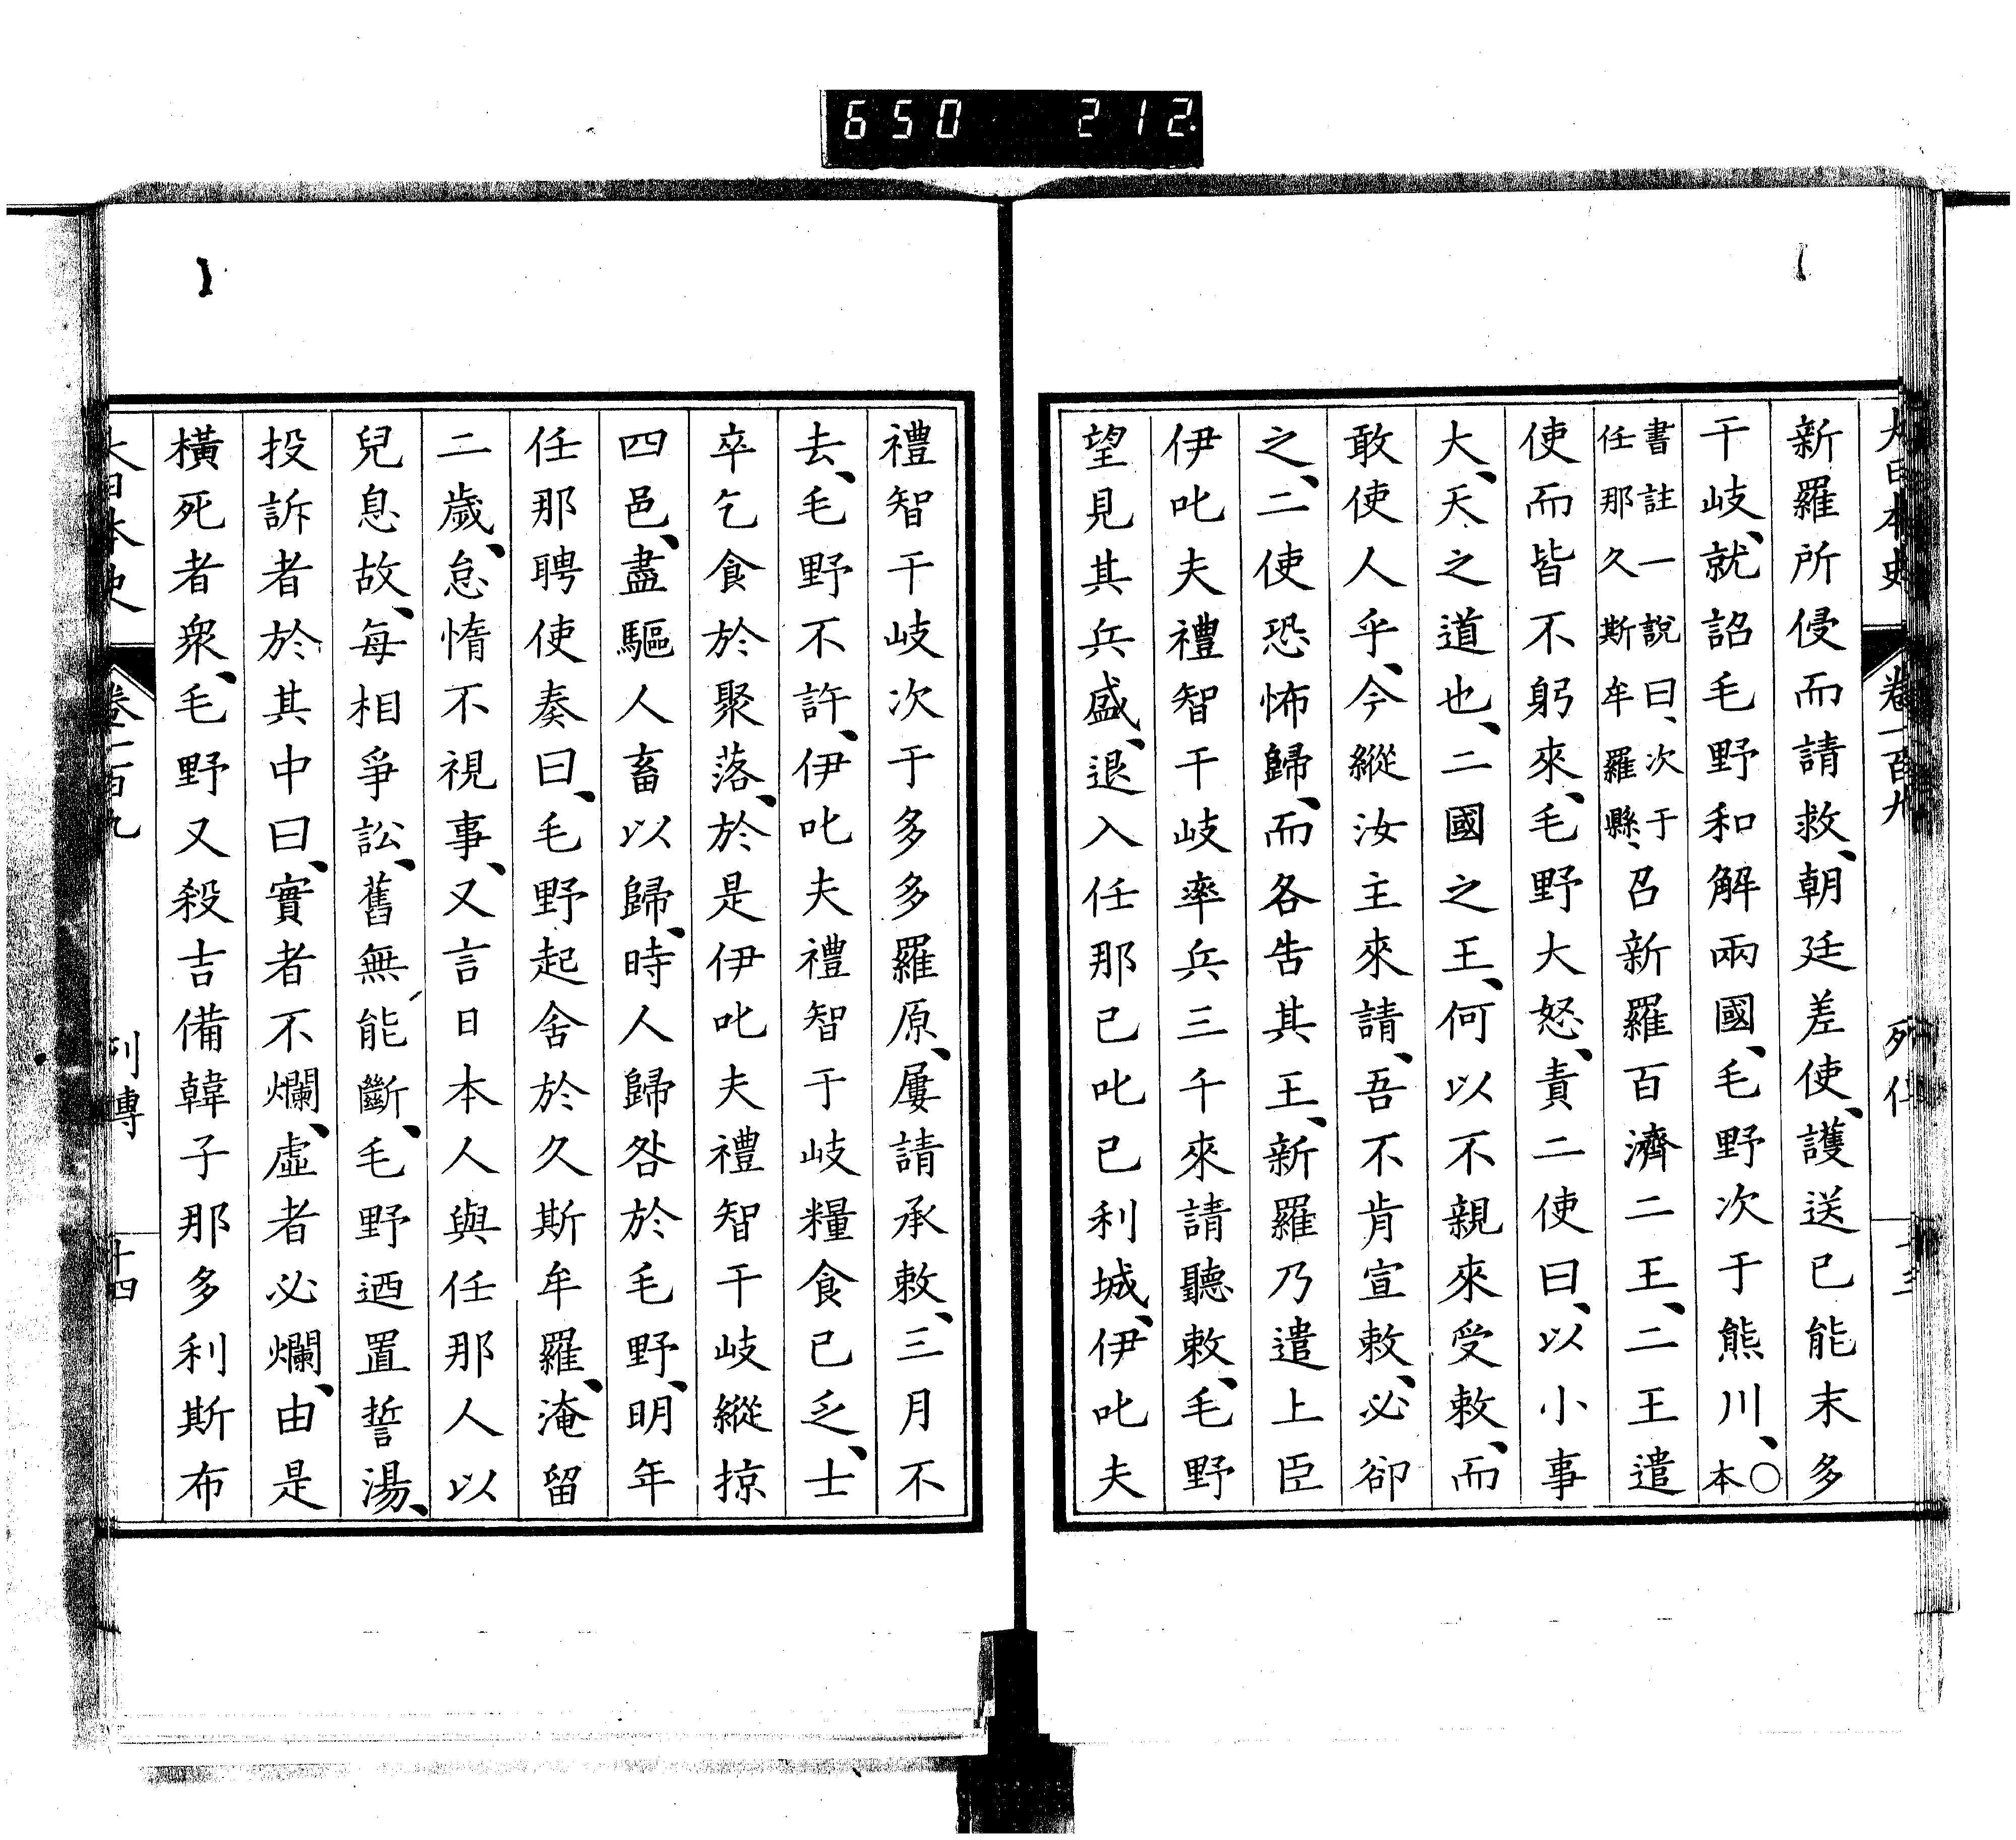 650 212
大日本史 卷一百九 列傳 十三
新羅所侵而請救、朝廷差使、護送已能末多
干岐、就詔毛野和解兩國、毛野次于熊川、○本
書註一說曰、次于
任那久斯牟羅縣、召新羅百濟二王、二王遣
使而皆不躬來、毛野大怒、責二使曰、以小事
大、天之道也、二國之王、何以不親來受敕、而
敢使人乎、今縱汝主來請、吾不肯宣敕、必卻
之、二使恐怖歸、而各告其王、新羅乃遣上臣
伊叱夫禮智干岐率兵三千來請聽敕、毛野
望見其兵盛、退入任那已叱己利城、伊叱夫
禮智干岐次于多多羅原、屢請承敕、三月不
去、毛野不許、伊叱夫禮智于岐糧食已乏、士
卒乞食於聚落、於是伊叱夫禮智干岐縱掠
四邑、盡驅人畜以歸、時人歸咎於毛野、明年
任那聘使奏曰、毛野起舍於久斯牟羅、淹留
二歲、怠惰不視事、又言日本人與任那人以
兒息故、每相爭訟、舊無能斷、毛野迺置誓湯、
投訴者於其中曰、實者不爛、虛者必爛、由是
橫死者衆、毛野又殺吉備韓子那多利斯布
大日本史 卷一百九 列傳 十四